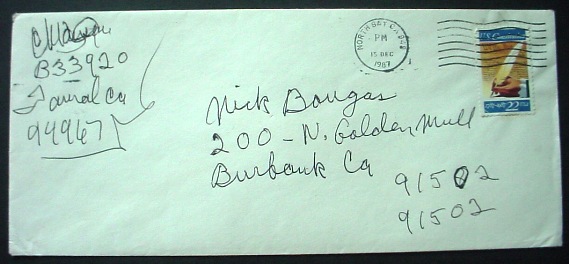 C Manson
B33920
Tamal Ca
94967
NORTH BAY CA 949
PM
15 DEC
1987
Nick Bougas
200-N. Golden Mall
Burbank Ca
91502
91502
22